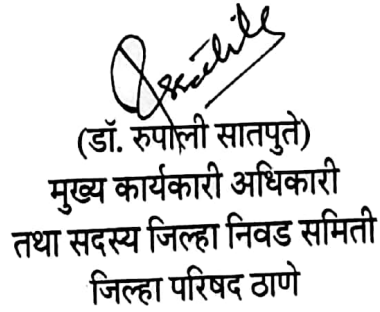 (डॉ. रुपाली सातपुते)
मुख्य कार्यकारी अधिकारी
तथा सदस्य जिल्हा निवड समिती
जिल्हा परिषद ठाणे